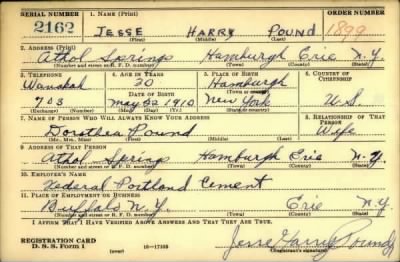 SERIAL NUMBER 1. NAME (Print) ORDER NUMBER
2162 JESSE HARRY POUND 1899
(First) (Middle) (Last)
2. ADDRESS (Print)
Athol Springs Hamburgh Erie N.Y.
(Number and street or R. F. D. number) (Town) (County) (State)
3. TELEPHONE 4. AGE IN YEARS 5. PLACE OF BIRTH 6. COUNTRY OF CITIZENSHIP
Wanakah 30 Hamburgh
DATE OF BIRTH (Town or county)
703 May 22 1910 New York U.S.
(Exchange) (Number) (Mo.) (Day) (Yr.) (State or country)
7. NAME OF PERSON WHO WILL ALWAYS KNOW YOUR ADDRESS 8. RELATIONSHIP OF THAT PERSON
Dorothea Pound Wife
(Mr., Mrs., Miss) (First) (Middle) (Last)
9. ADDRESS OF THAT PERSON
Athol Springs Hamburgh Erie N.Y.
(Number and street or R. F. D. number) (Town) (County) (State)
10. EMPLOYER'S NAME
Federal Portland Cement
11. PLACE OF EMPLOYMENT OR BUSINESS
Buffalo N.Y. Erie N.Y.
(Number and street or R. F. D. number) (Town) (County) (State)
I AFFIRM THAT I HAVE VERIFIED ABOVE ANSWERS AND THAT THEY ARE TRUE.
REGISTRATION CARD
D. S. S. Form 1 (over) 16—17105 Jesse Harry Pound
(Registrant's signature)